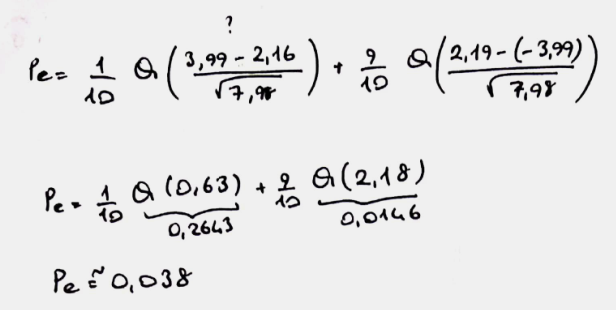 ?
Pe = 1/10 Q ( (3,99 - 2,16) / √7,98 ) + 9/10 Q ( (2,19 - (-3,99)) / √7,98 )
Pe = 1/10 Q (0,63) + 9/10 Q (2,18)
0,2643 0,0146
Pe ≅ 0,038